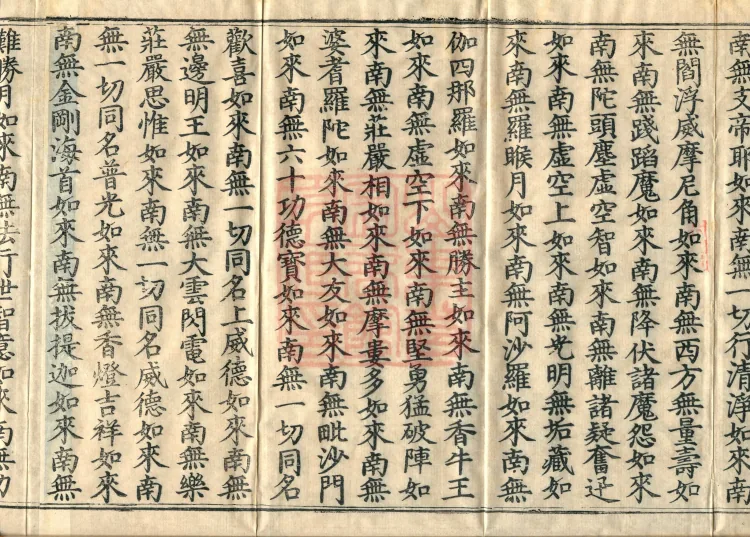 南無支帝耶如來南無一切行清淨如來南
無閻浮威摩尼角如來南無西方無量壽如
來南無踐蹈魔如來南無降伏諸魔怨如來
南無陀頭塵虛空智如來南無離諸疑奮迅
如來南無虛空上如來南無光明無垢藏如
來南無羅睺月如來南無阿沙羅如來南無
伽四那羅如來南無勝主如來南無香牛王
如來南無虛空下如來南無堅勇猛破陣如
來南無莊嚴相如來南無摩婁多如來南無
婆耆羅陀如來南無大友如來南無毗沙門
如來南無六十功德寶如來南無一切同名
歡喜如來南無一切同名上威德如來南無
無邊明王如來南無大雲閃電如來南無樂
莊嚴思惟如來南無一切同名威德如來南
無一切同名普光如來南無香燈吉祥如來
南無金剛海首如來南無拔提迦如來南無
難勝月如來南無法行世智意如來南無功